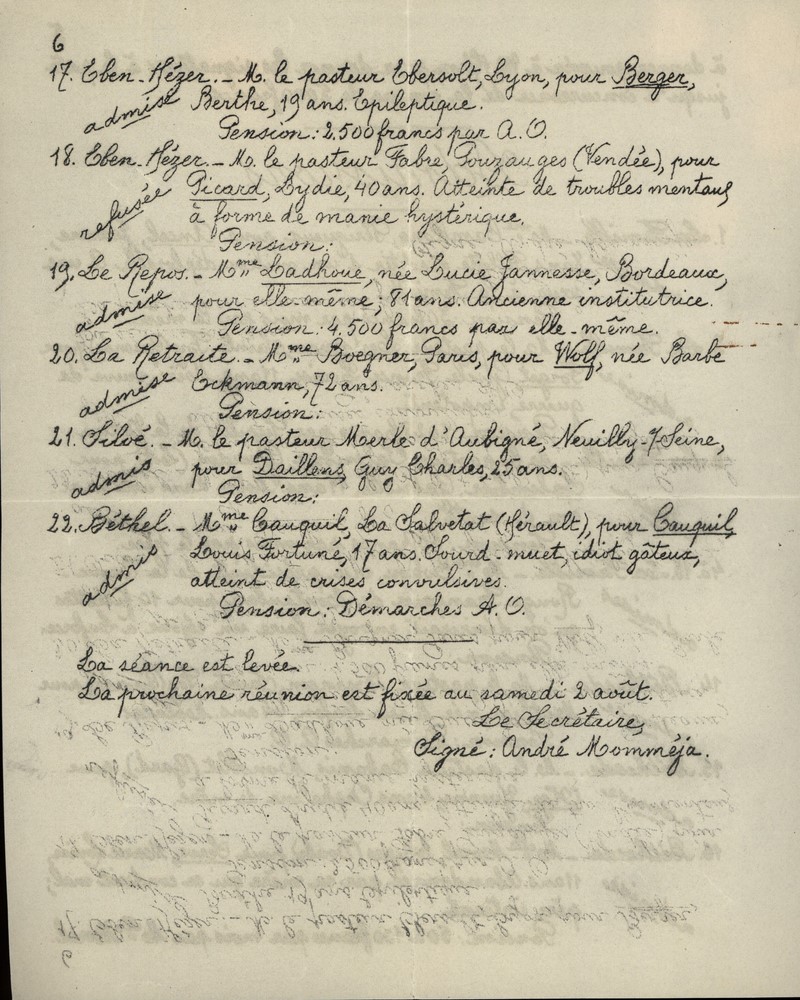 6
17. Eben-Hézer. - M. le pasteur Ebersolt, Lyon, pour Berger,
admise Berthe, 19 ans. Epileptique.
Pension: 2.500 francs par A. O.
18. Eben-Hézer. - M. le pasteur Fabre, Pouzauges (Vendée), pour
refusée Picard, Lydie, 40 ans. Atteinte de troubles mentaux
à forme de manie hystérique.
Pension:
19. Le Repos. - Mme Ladhoue, née Lucie Jannesse, Bordeaux,
admise pour elle-même; 81 ans. Ancienne institutrice.
Pension: 4.500 francs par elle-même.
20. La Retraite. - Mme Boegner, Paris, pour Wolf, née Barbe
admise Eckmann, 72 ans.
Pension:
21. Siloé. - M. le pasteur Merle d'Aubigné, Neuilly-s/Seine,
admis pour Daillens, Guy Charles, 25 ans.
Pension:
22. Béthel. - Mme Cauquil, La Salvetat (Hérault), pour Cauquil,
admis Louis Fortuné, 17 ans. Sourd-muet, idiot gâteux,
atteint de crises convulsives.
Pension: Démarches A. O.
La séance est levée.
La prochaine réunion est fixée au samedi 2 août.
Le Secrétaire,
Signé: André Momméja.